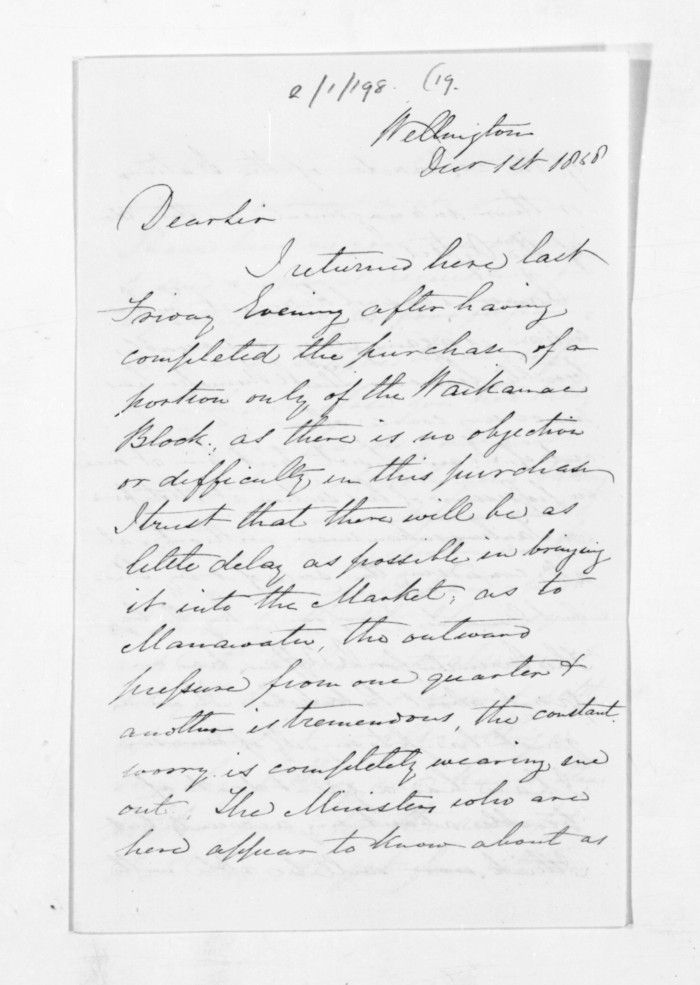 2/1/198. (19.
Wellington
Decr 1st 1868
Dear Sir
I returned here last
Friday Evening after having
completed the purchase of a
portion only of the Waikanae
Block; as there is no objection
or difficulty in this purchase
I trust that there will be as
little delay as possible in bringing
it into the Market; as to
Manawatu, the outward
pressure from one quarter &
another is tremendous, the constant
worry is completely wearing me
out. The Ministers who are
here appear to know about as